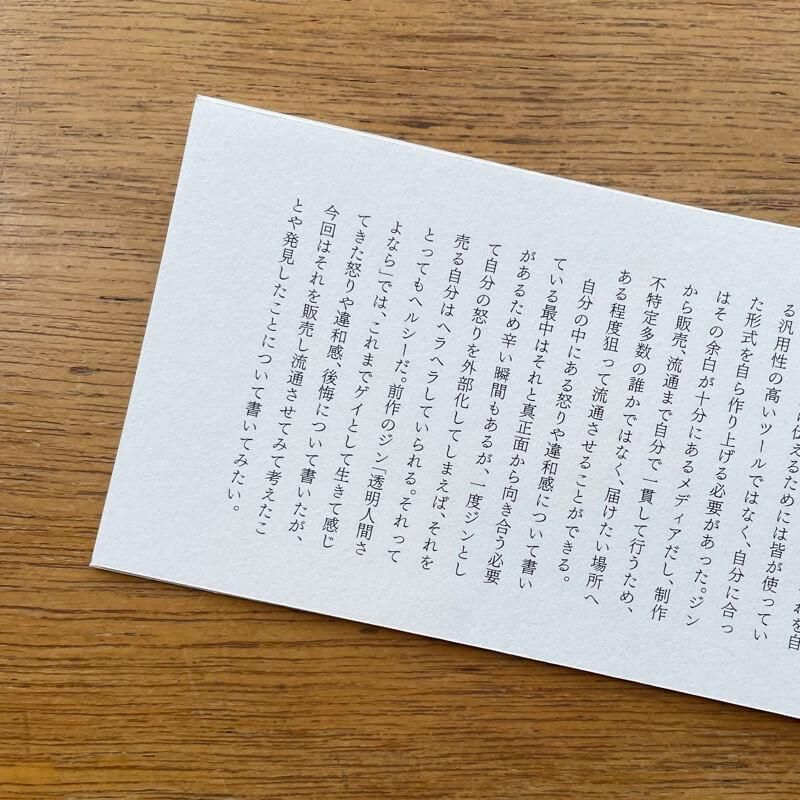 伝えるためには皆が使ってい
る汎用性の高いツールではなく、自分に合っ
た形式を自ら作り上げる必要があった。ジン
はその余白が十分にあるメディアだし、制作
から販売、流通まで自分で一貫して行うため、
不特定多数の誰かではなく、届けたい場所へ
ある程度狙って流通させることができる。
自分の中にある怒りや違和感について書い
ている最中はそれと真正面から向き合う必要
があるため辛い瞬間もあるが、一度ジンとし
て自分の怒りを外部化してしまえば、それを
売る自分はヘラヘラしていられる。それって
とってもヘルシーだ。前作のジン「透明人間さ
よなら」では、これまでゲイとして生きて感じ
てきた怒りや違和感、後悔について書いたが、
今回はそれを販売し流通させてみて考えたこ
とや発見したことについて書いてみたい。